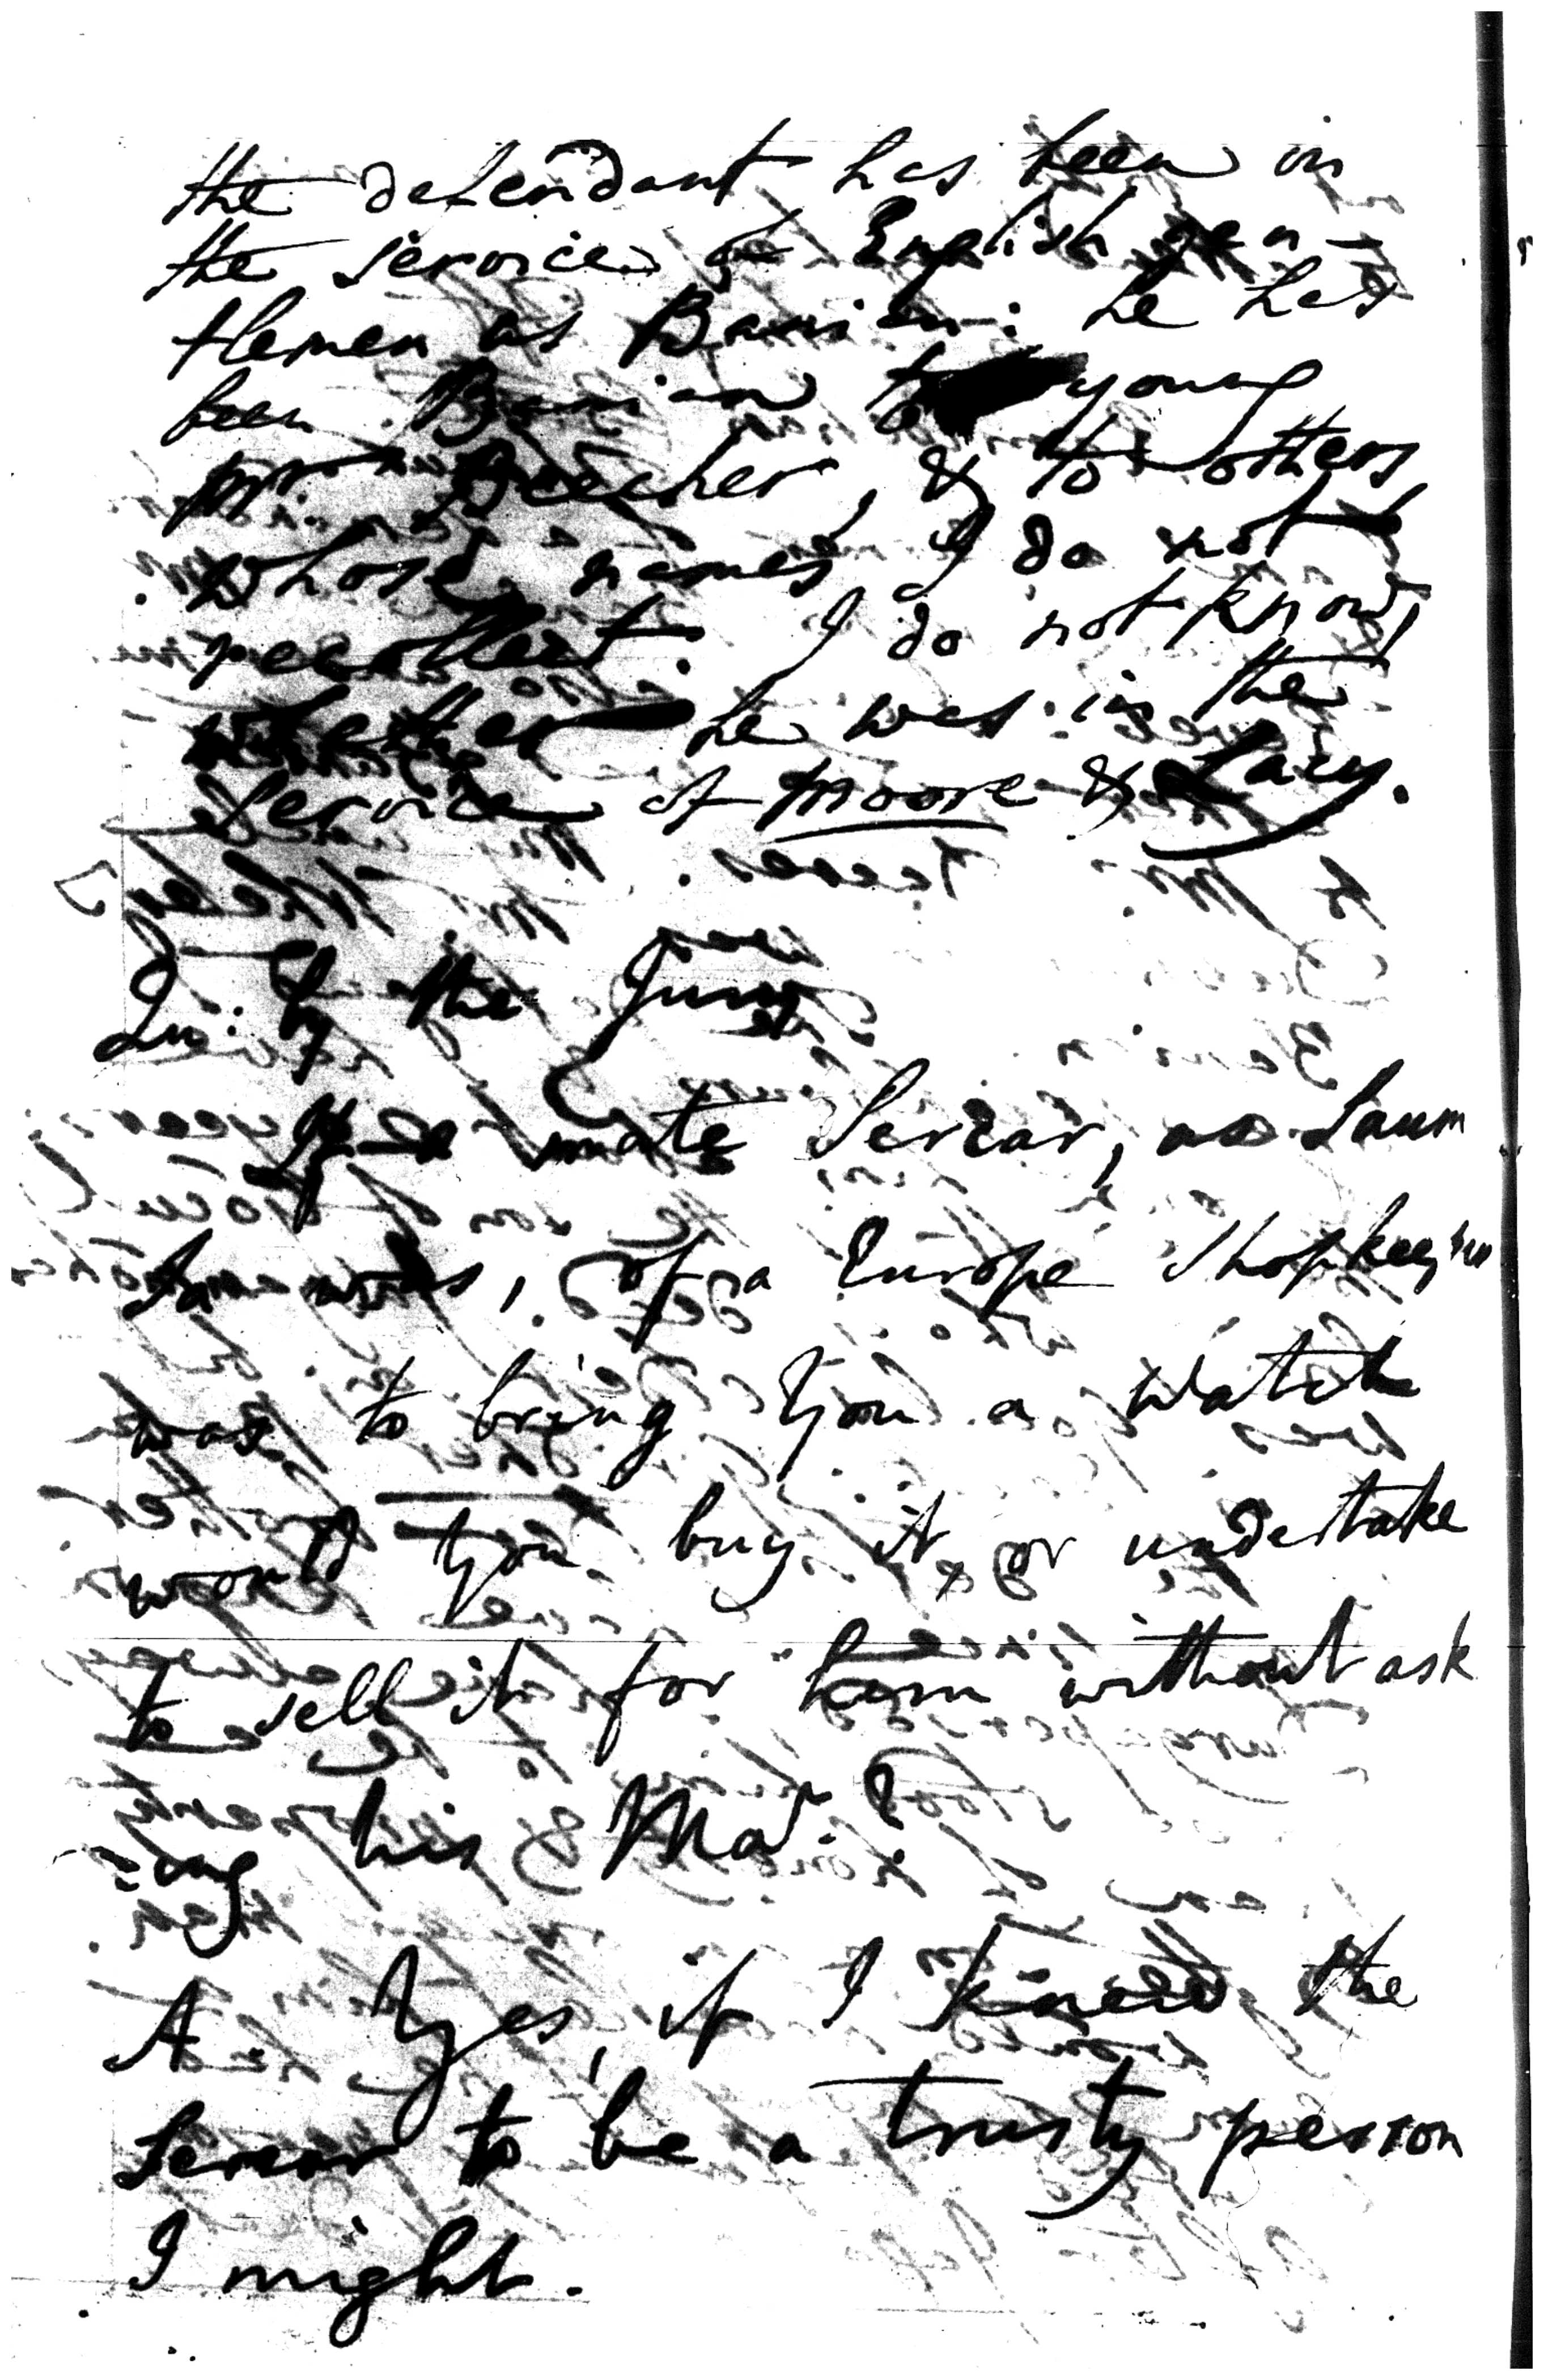 the defendant has been in
the service of English gen-
tlemen as Banian: he has
been Banian to young
Mr Beecher, & to others,
whose names I do not
recollect. I do not know
whether he was in the
service of Moore & Lacy.
Qu: by the Jury
If a mate Sercar, as
of a Europe Shopkeep'r
was to bring you a watch
would you buy it or undertake
to sell it for him without ask
=ing his Mas.r?
A Yes, if I knew the
Sercar to be a trusty person
I might.